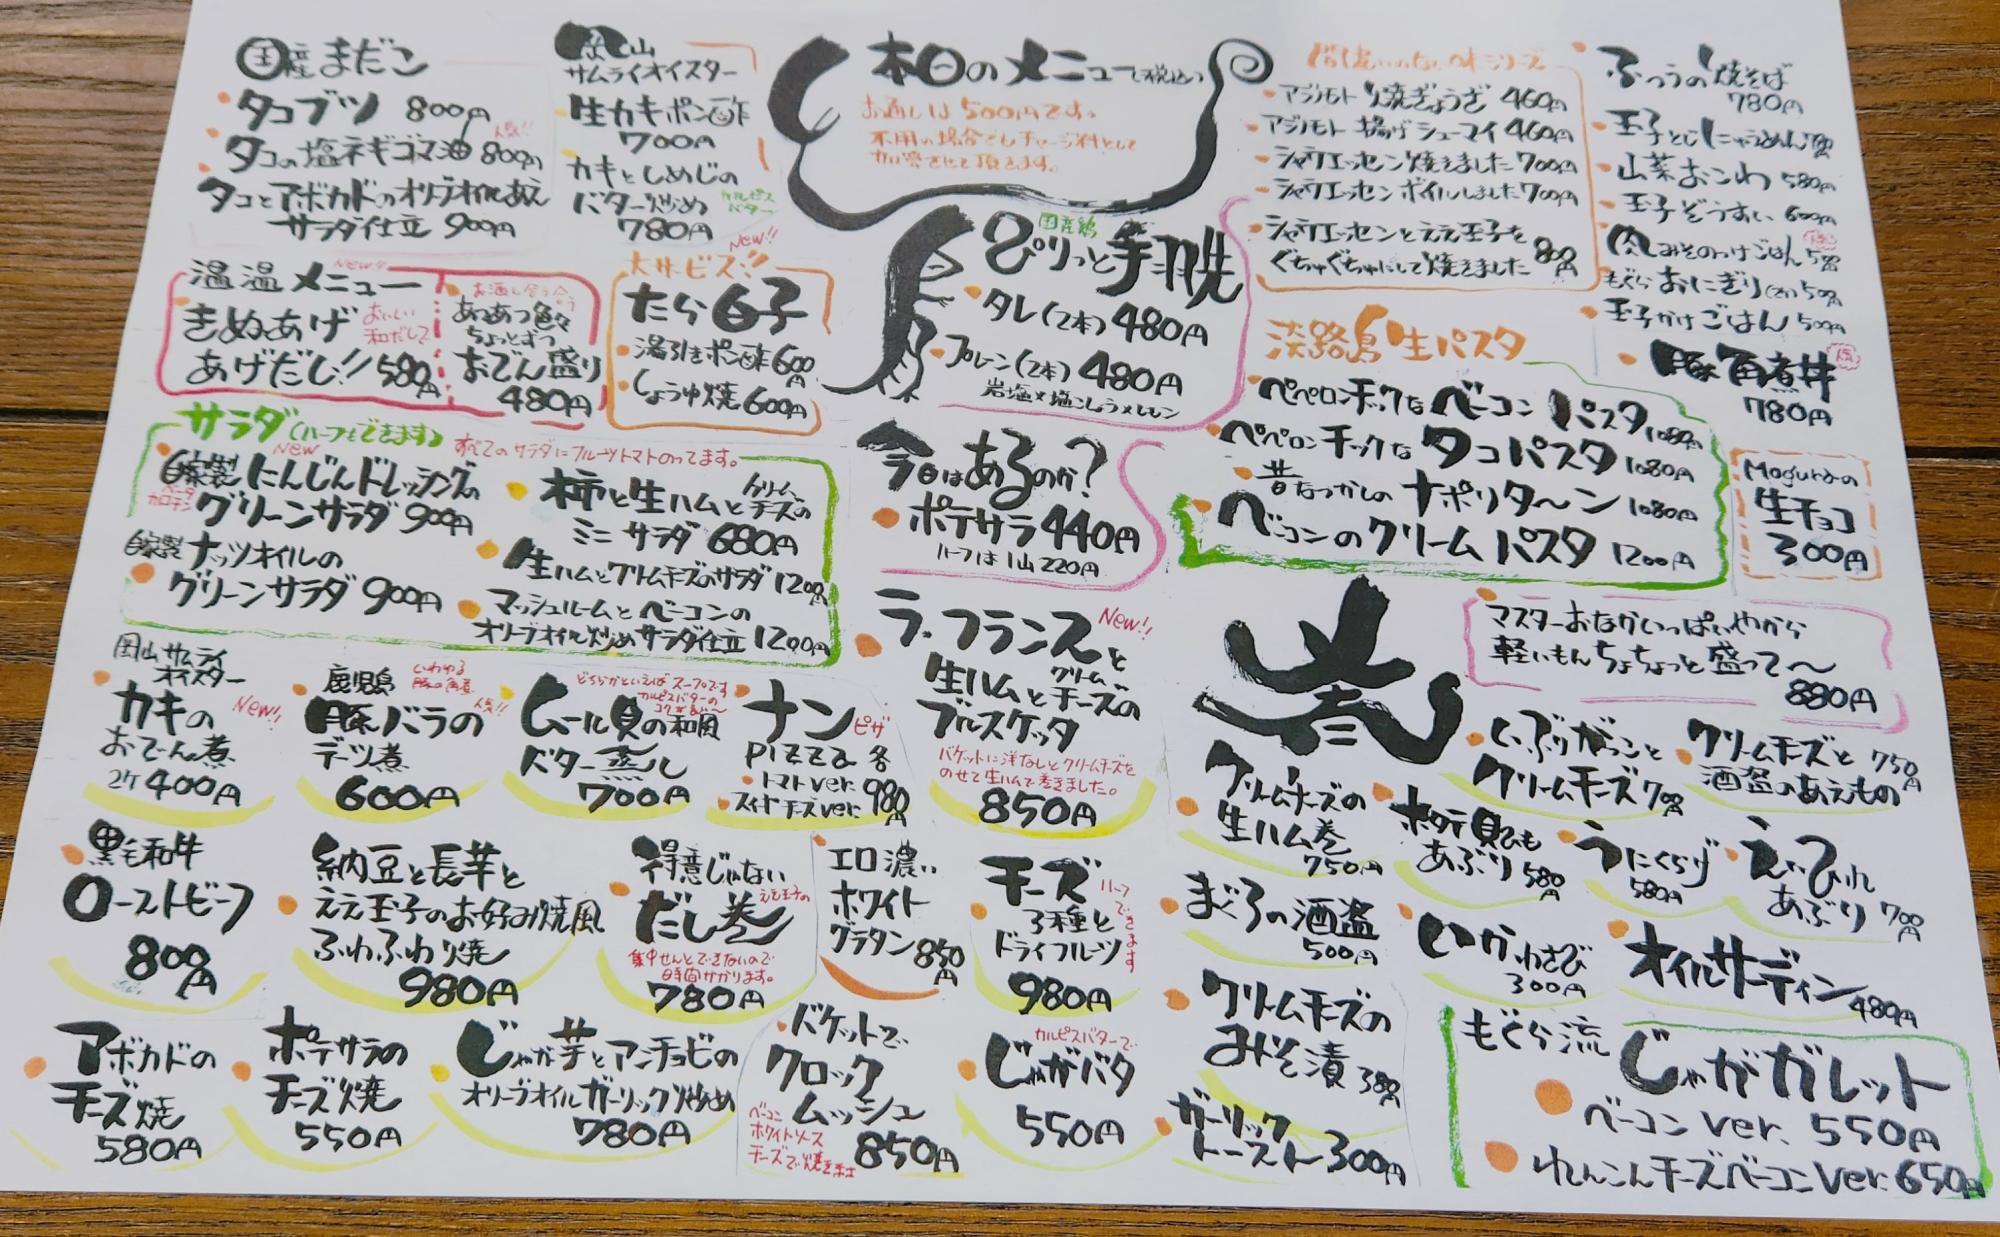 国産まだこ
タコブツ 800円
人気!!
タコの塩ネギゴマ油 800円
タコとアボカドのオリーブオイルあえ
サラダ仕立 900円
岡山
サムライオイスター
生カキポン酢
700円
カキとしめじの
バター炒め
カルピス
バター
780円
本日のメニュー(税込)
お通しは500円です。
不用の場合でもチャージ料として
加算させて頂きます。
間違いのない味シリーズ
アジノモト 焼ぎょうざ 460円
アジノモト 揚げシューマイ 460円
シャウエッセン焼きました 700円
シャウエッセンボイルしました 700円
シャウエッセンとええ玉子を
ぐちゃぐちゃにして焼きました 800円
ふつうの焼そば
780円
玉子とじにゅうめん
山菜おこわ 580円
玉子ぞうすい 600円
肉みそのっけごはん
もぐらおにぎり(2コ) 500円
玉子かけごはん 500円
豚角煮丼
人気
780円
温温メニュー
きぬあげ
おいしい
和だしで
あげだし!! 580円
お酒に合う
あつあつ色々
ちょっとずつ
おでん盛り
480円
New!!
大サービス!!
たら白子
湯引きポン酢 600円
しょうゆ焼 600円
国産鶏
ぴりっと手羽先
タレ(2本) 480円
プレーン(2本) 480円
岩塩×塩こしょう×レモン
淡路島生パスタ
ペペロンチックなベーコンパスタ 1080円
ペペロンチックなタコパスタ 1080円
昔なつかしのナポリタ〜ン 1080円
ベーコンのクリームパスタ 1200円
Moguraの
生チョコ
300円
サラダ(ハーフもできます)
すべてのサラダにフルーツトマトのってます。
New
自家製にんじんドレッシングの
ベータ
カロテン
グリーンサラダ 900円
自家製ナッツオイルの
グリーンサラダ 900円
柿と生ハムとクリームチーズの
ミニサラダ 680円
生ハムとクリームチーズのサラダ 1200円
マッシュルームとベーコンの
オリーブオイル炒めサラダ仕立 1200円
今日はあるのか?
ポテサラ 440円
ハーフは1山220円
岡山サムライ
オイスター
カキの
New!!
おでん煮
2ケ 400円
鹿児島
いわゆる
豚の角煮
人気!!
豚バラの
デーツ煮
600円
どちらかといえばスープです
カルピスバターの
コクがある〜
ムール貝の和風
バター蒸し
700円
ナン
ピザ
Pizza 各
トマトver.
980円
スイートチーズver.
ラ・フランスと
New!!
生ハムとクリームチーズの
ブルスケッタ
バケットに洋なしとクリームチーズを
のせて生ハムで巻きました。
850円
マスターおなかいっぱいやから
軽いもんちょちょっと盛って〜
880円
クリームチーズの
生ハム巻
750円
いぶりがっこと
クリームチーズ 700円
クリームチーズと
酒盗のあえもの
750円
ホタテ貝ひも
あぶり 580円
うにくらげ
580円
えいひれ
あぶり 700円
まぐろの酒盗
500円
いかわさび
300円
オイルサーディン 480円
クリームチーズの
みそ漬 380円
ガーリック
トースト 300円
黒毛和牛
ローストビーフ
800円
納豆と長芋と
ええ玉子のお好み焼風
ふわふわ焼
980円
得意じゃない
ええ玉子の
だし巻
集中せんとできないので
時間かかります。
780円
エロ濃い
ホワイト
グラタン 850円
チーズ
3種と
ドライフルーツ
ハーフできます
980円
アボカドの
チーズ焼
580円
ポテサラの
チーズ焼
550円
じゃが芋とアンチョビの
オリーブオイルガーリック炒め
780円
バケットで
クロック
ムッシュ
ベーコン
ホワイトソース
チーズで焼きます
850円
カルピスバターで
じゃがバタ
550円
もぐら流
じゃがガレット
ベーコンver. 550円
れんこんチーズベーコンver. 650円